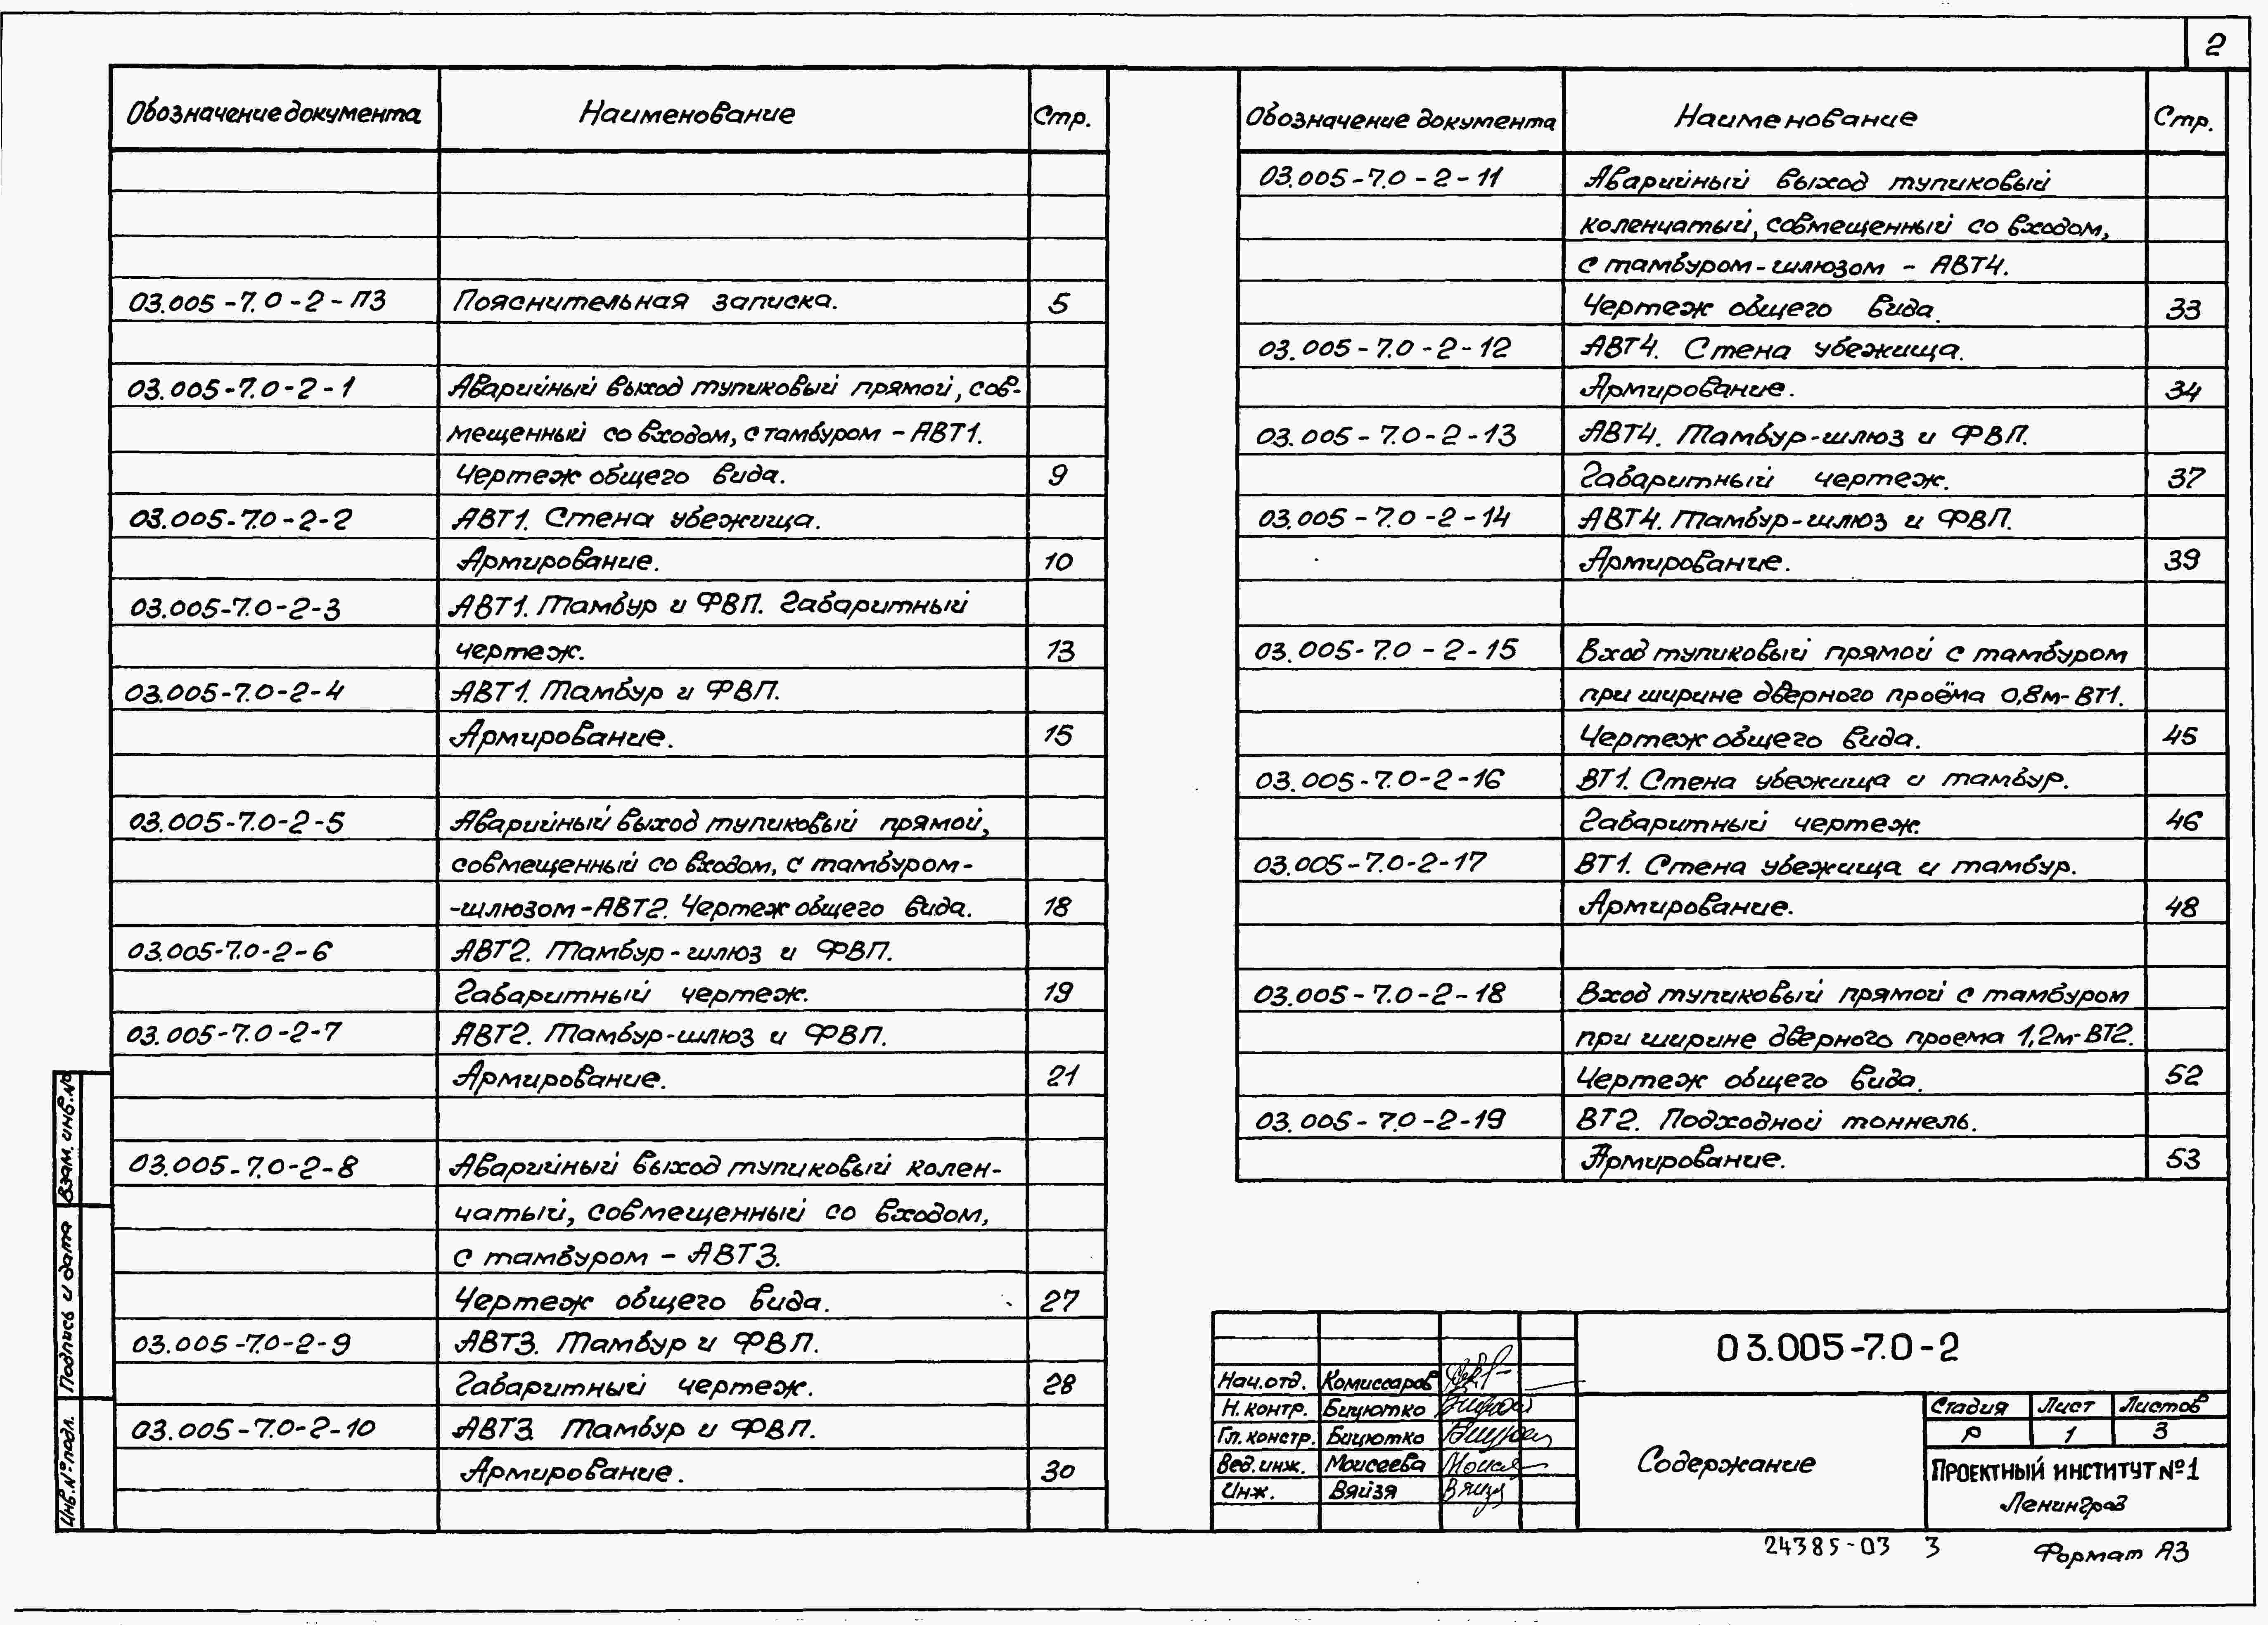 2
Обозначение документа Наименование Стр.
03.005-7.0-2-ПЗ Пояснительная записка. 5
03.005-7.0-2-1 Аварийный выход тупиковый прямой, сов-
мещенный со входом, с тамбуром - АВТ1.
Чертеж общего вида. 9
03.005-7.0-2-2 АВТ1. Стена убежища.
Армирование. 10
03.005-7.0-2-3 АВТ1. Тамбур и ФВП. Габаритный
чертеж. 13
03.005-7.0-2-4 АВТ1. Тамбур и ФВП.
Армирование. 15
03.005-7.0-2-5 Аварийный выход тупиковый прямой,
совмещенный со входом, с тамбуром-
-шлюзом-АВТ2. Чертеж общего вида. 18
03.005-7.0-2-6 АВТ2. Тамбур-шлюз и ФВП.
Габаритный чертеж. 19
03.005-7.0-2-7 АВТ2. Тамбур-шлюз и ФВП.
Армирование. 21
03.005-7.0-2-8 Аварийный выход тупиковый колен-
чатый, совмещенный со входом,
с тамбуром - АВТ3.
Чертеж общего вида. 27
03.005-7.0-2-9 АВТ3. Тамбур и ФВП.
Габаритный чертеж. 28
03.005-7.0-2-10 АВТ3. Тамбур и ФВП.
Армирование. 30
Обозначение документа Наименование Стр.
03.005-7.0-2-11 Аварийный выход тупиковый
коленчатый, совмещенный со входом,
с тамбуром-шлюзом - АВТ4.
Чертеж общего вида. 33
03.005-7.0-2-12 АВТ4. Стена убежища.
Армирование. 34
03.005-7.0-2-13 АВТ4. Тамбур-шлюз и ФВП.
Габаритный чертеж. 37
03.005-7.0-2-14 АВТ4. Тамбур-шлюз и ФВП.
Армирование. 39
03.005-7.0-2-15 Вход тупиковый прямой с тамбуром
при ширине дверного проёма 0,8м-ВТ1.
Чертеж общего вида. 45
03.005-7.0-2-16 ВТ1. Стена убежища и тамбур.
Габаритный чертеж. 46
03.005-7.0-2-17 ВТ1. Стена убежища и тамбур.
Армирование. 48
03.005-7.0-2-18 Вход тупиковый прямой с тамбуром
при ширине дверного проема 1,2м-ВТ2.
Чертеж общего вида. 52
03.005-7.0-2-19 ВТ2. Подходной тоннель.
Армирование. 53
Взам. инв. №
Подпись и дата
Инв. № подл.
03.005-7.0-2
Нач. отд. Комиссаров
Н. контр. Бицютко
Гл. констр. Бицютко
Вед. инж. Моисеева
Инж. Вяйзя
Содержание
Стадия Лист Листов
Р 1 3
ПРОЕКТНЫЙ ИНСТИТУТ №1
Ленинград
24385-03 3
Формат А3